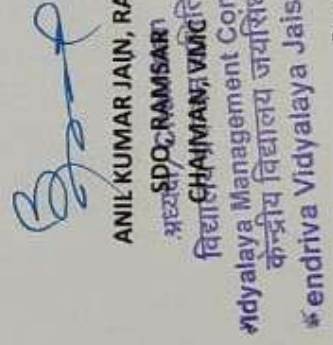 ANIL KUMAR JAIN, RA
SDO, RAMSAR
अध्यक्ष
CHAIMAN, VMC
विद्यालय
Vidyalaya Management Con
केन्द्रीय विद्यालय जयसि
Kendriya Vidyalaya Jais